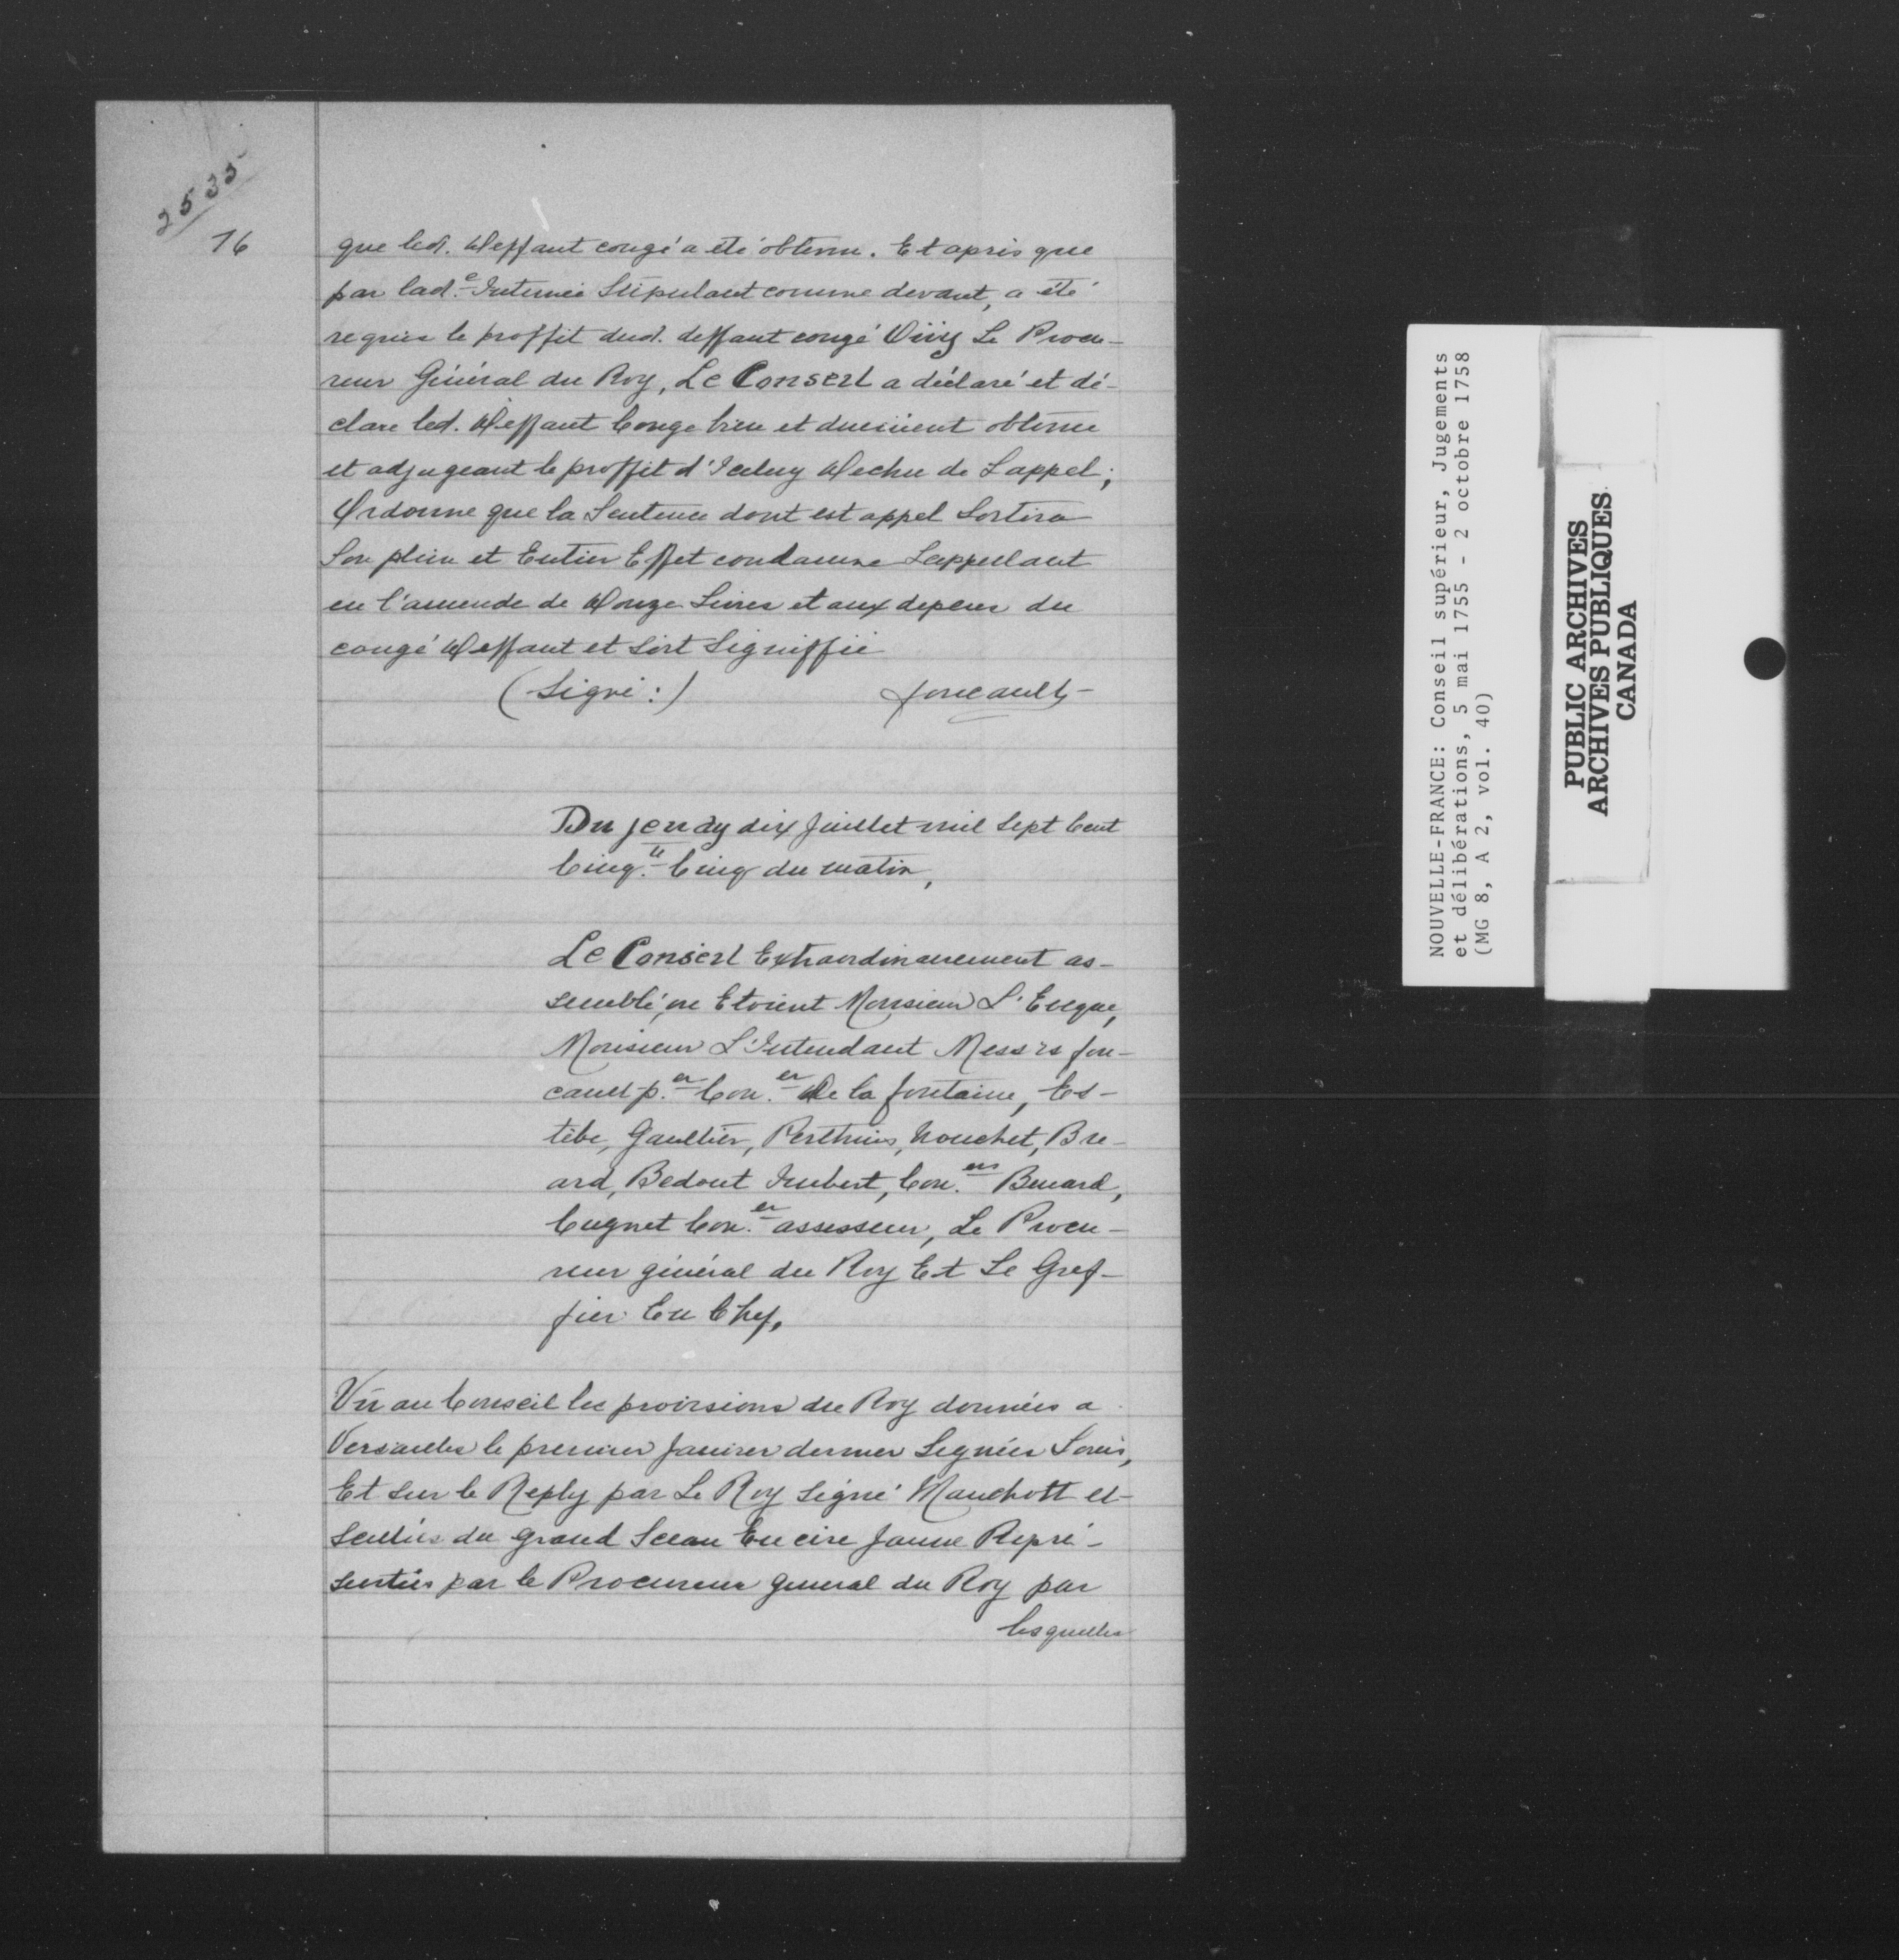 2535
16
que led. Deffaut congé a été obtenu. Et après que
par lad.e Intimée Stipulant comme devant, a été
requis le proffit dud. deffaut congé Oüiy Le Procu-
reur Général du Roy, Le Conseil a déclaré et dé-
clare led. Deffaut Congé bien et duëment obtenu
et adjugeant le proffit d'Iceluy Dechu de Lappel;
Ordonne que la Sentence dont est appel Sortira
Son plein et Entier Effet condamne Lappellant
en l'amende de Douze Livres et aux depens du
congé Deffaut et Soit Signiffié
(Signé:) foucault
Du jeudy dix Juillet mil Sept Cent
Cinq.te Cinq du matin,
Le Conseil Extraordinairement as-
semblé, ou Etoient Monsieur L'Eveque,
Monsieur L'Intendant Messrs fou-
cault p.er Con.er De la fontaine, Es-
tèbe, Gaultier, Perthuis, Nouchet, Bre-
ard, Bedout Imbert, Con.ers Benard,
Cugnet Con.er assesseur, Le Procu-
reur général du Roy Et Le Gref-
fier En Chef,
Vû au Conseil les provisions du Roy données a
Versailles le premier Janvier dernier Signées Louis,
Et sur le Reply par Le Roy Signé Mauchott et
Scellées du grand Sceau En cire Jaune Repré-
sentées par le Procureur general du Roy par
lesquelles
NOUVELLE-FRANCE: Conseil supérieur, Jugements
et délibérations, 5 mai 1755 - 2 octobre 1758
(MG 8, A 2, vol. 40)
PUBLIC ARCHIVES
ARCHIVES PUBLIQUES
CANADA